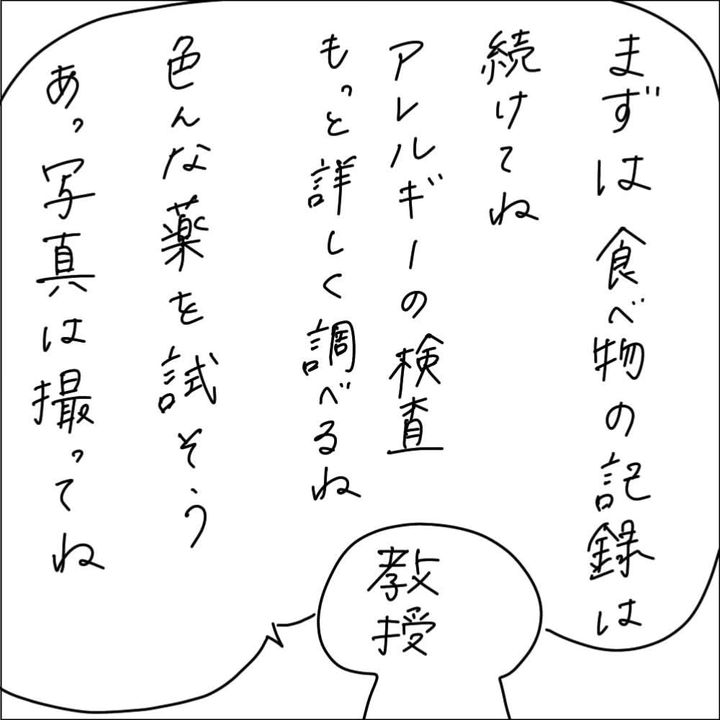 まずは食べ物の記録は
続けてね
アレルギーの検査
もっと詳しく調べるね
色んな薬を試そう
あっ写真は撮ってね
教授